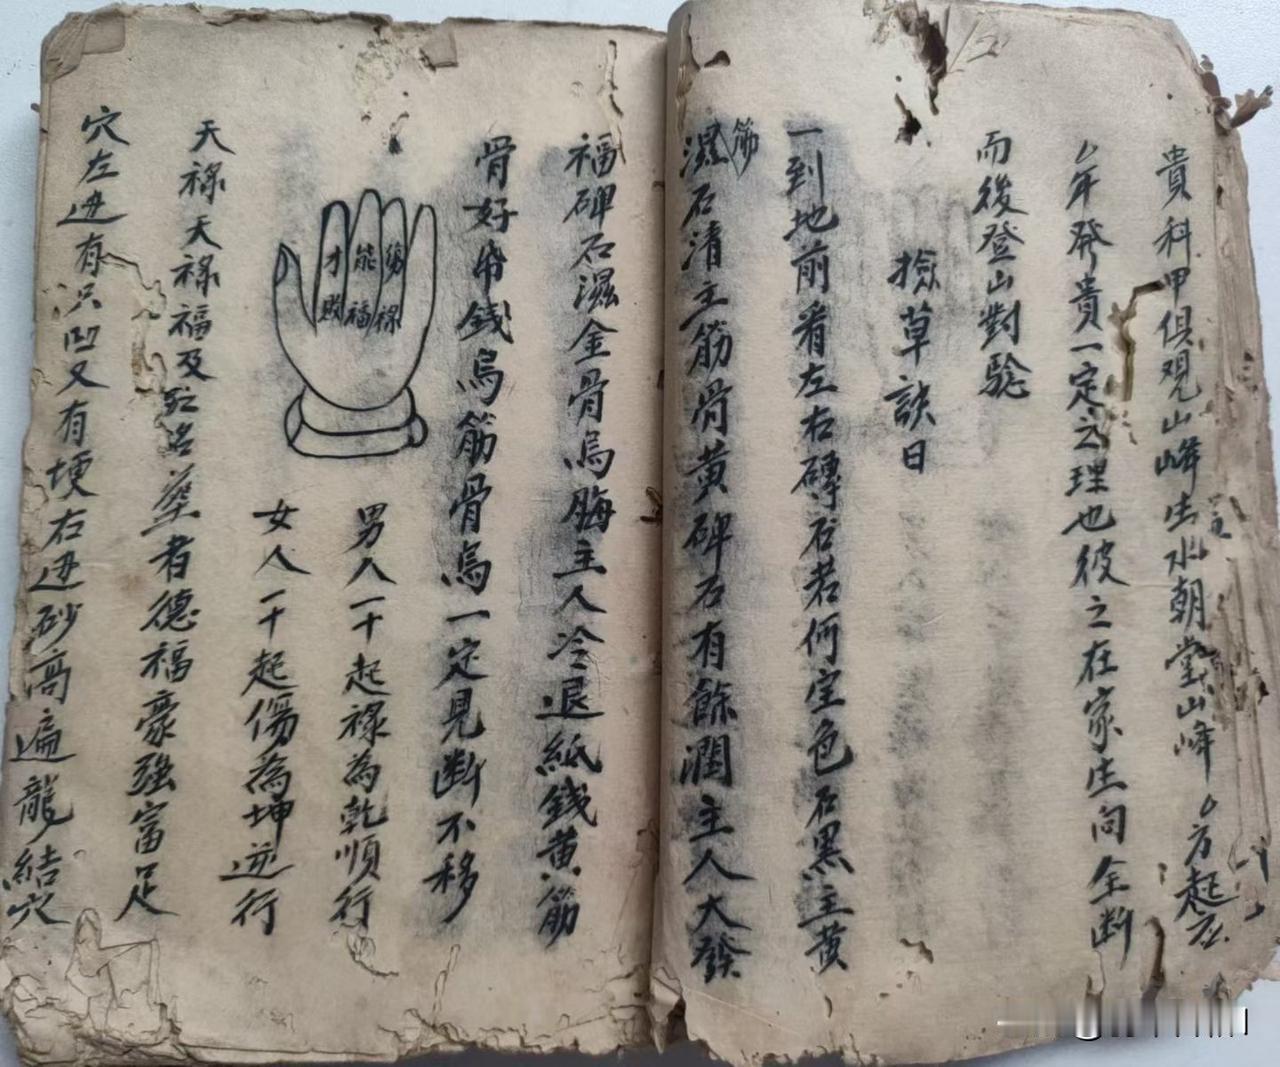 貴科甲俱观山峰出水朝堂山峰方起
年發貴一定之理也彼之在家坐向全断
而後登山對驗
撿草訣曰
一到地前看左右磚石若何定色石黑主黄
筋
濕石清主筋骨黄碑石有餘潤主人大發
福碑石濕金骨烏晦主人冷退紙錢黄筋
骨好帋錢烏筋骨烏一定見断不移
才 能 傷
敗 福 祿
男人一十起祿為乾順行
女人一十起傷為坤逆行
天祿天祿福及者德福豪強富足
穴左边有只凹又有埂右边砂高遍龍结穴